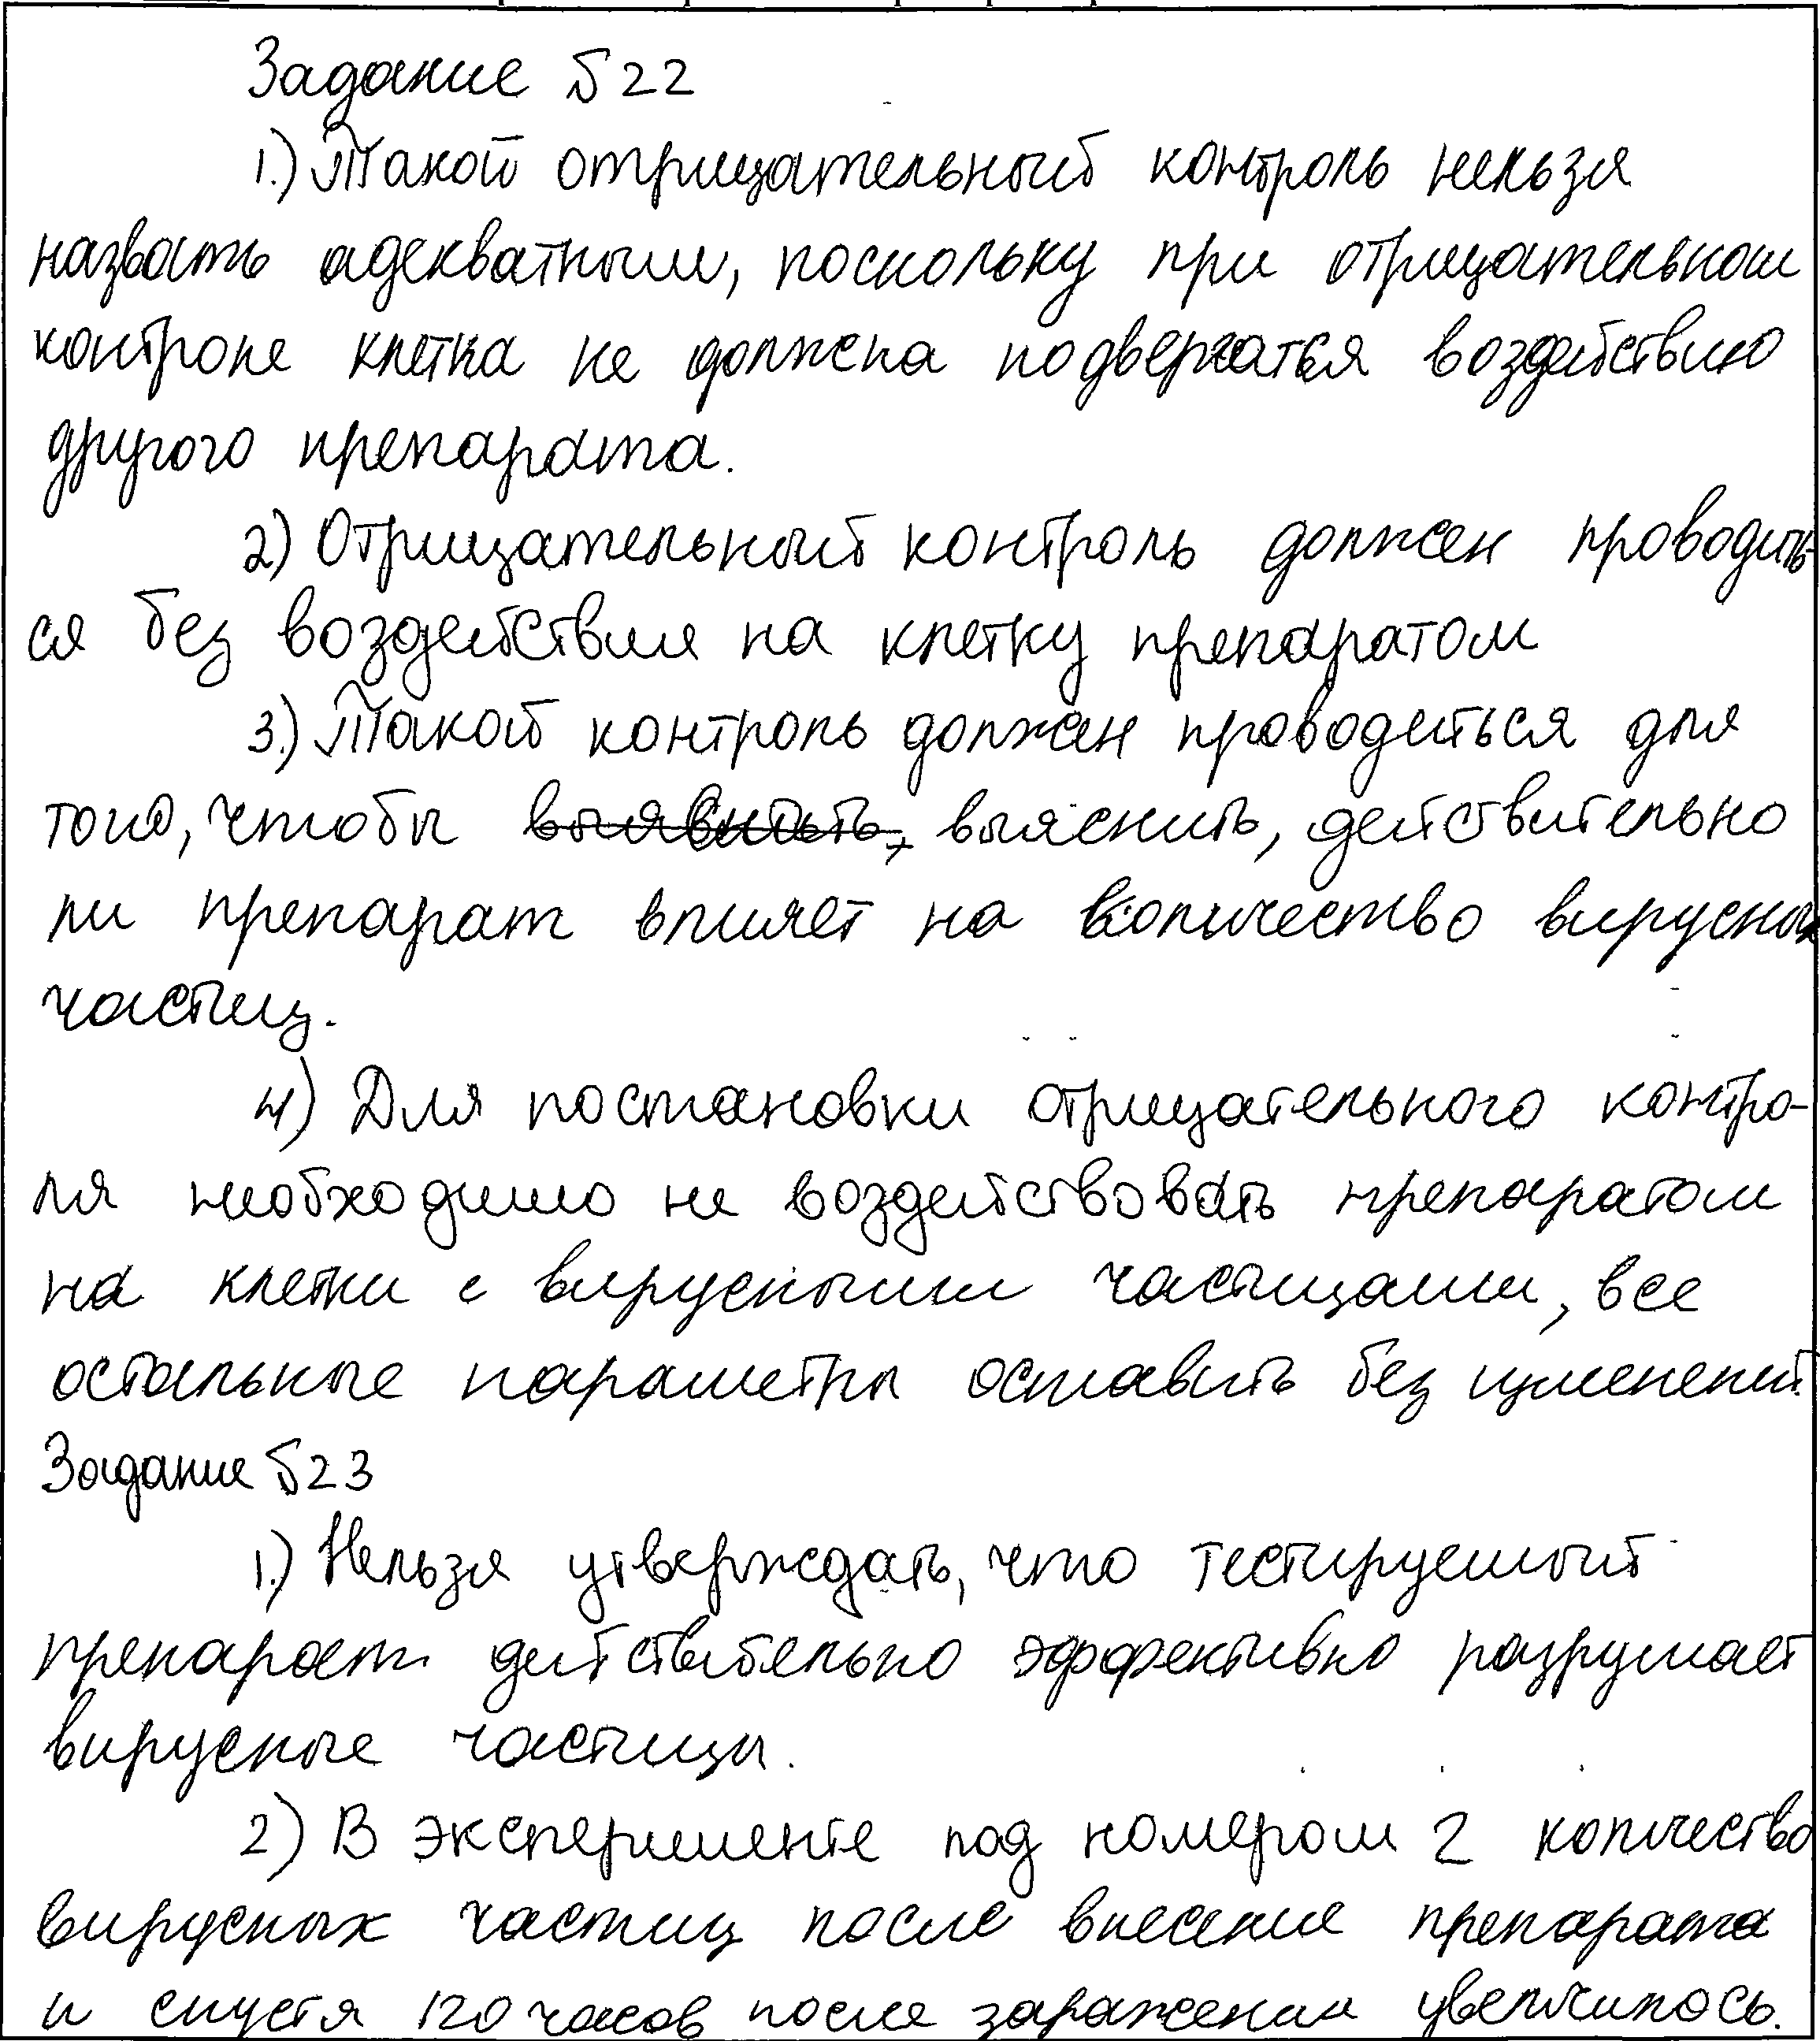 Задание №22
1.) Такой отрицательный контроль нельзя
назвать адекватным, поскольку при отрицательном
контроле клетка не должена подвергаться воздействию
другого препарата.
2) Отрицательный контроль должен проводить-
ся без воздействия на клетку препаратом
3.) Такой контроль должен проводиться для
того, чтобы выяснить, действительно
ли препарат влияет на количество вирусных
частиц.
4) Для постановки отрицательного контро-
ля необходимо не воздействовать препаратом
на клетки с вирусными частицами, все
остальные параметры оставить без изменений.
Задание №23
1.) Нельзя утверждать, что тестируемый
препарат действительно эффективно разрушает
вирусные частицы.
2) В эксперименте под номером 2 количество
вирусных частиц после внесение препарата
и спустя 120 часов после заражения увеличилось.